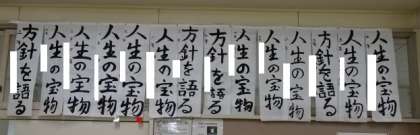 人生の宝物
人生の宝物
方針を語る
人生の宝物
人生の宝物
人生の宝物
方針を語る
方針を語る
人生の宝物
人生の宝物
人生の宝物
人生の宝物
人生の宝物
方針を語る